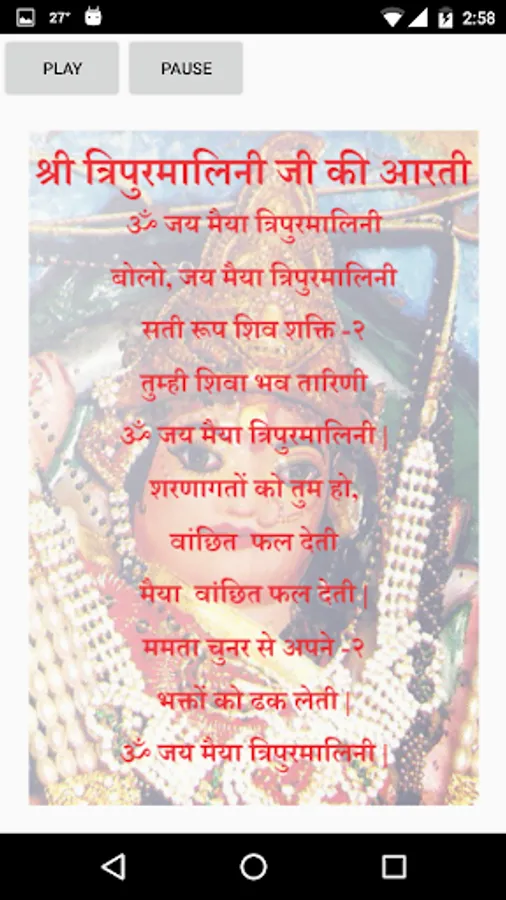 27°
2:58
PLAY PAUSE
श्री त्रिपुरमालिनी जी की आरती
ॐ जय मैया त्रिपुरमालिनी
बोलो, जय मैया त्रिपुरमालिनी
सती रूप शिव शक्ति -२
तुम्ही शिवा भव तारिणी
ॐ जय मैया त्रिपुरमालिनी |
शरणागतों को तुम हो,
वांछित फल देती
मैया वांछित फल देती |
ममता चुनर से अपने -२
भक्तों को ढक लेती |
ॐ जय मैया त्रिपुरमालिनी |